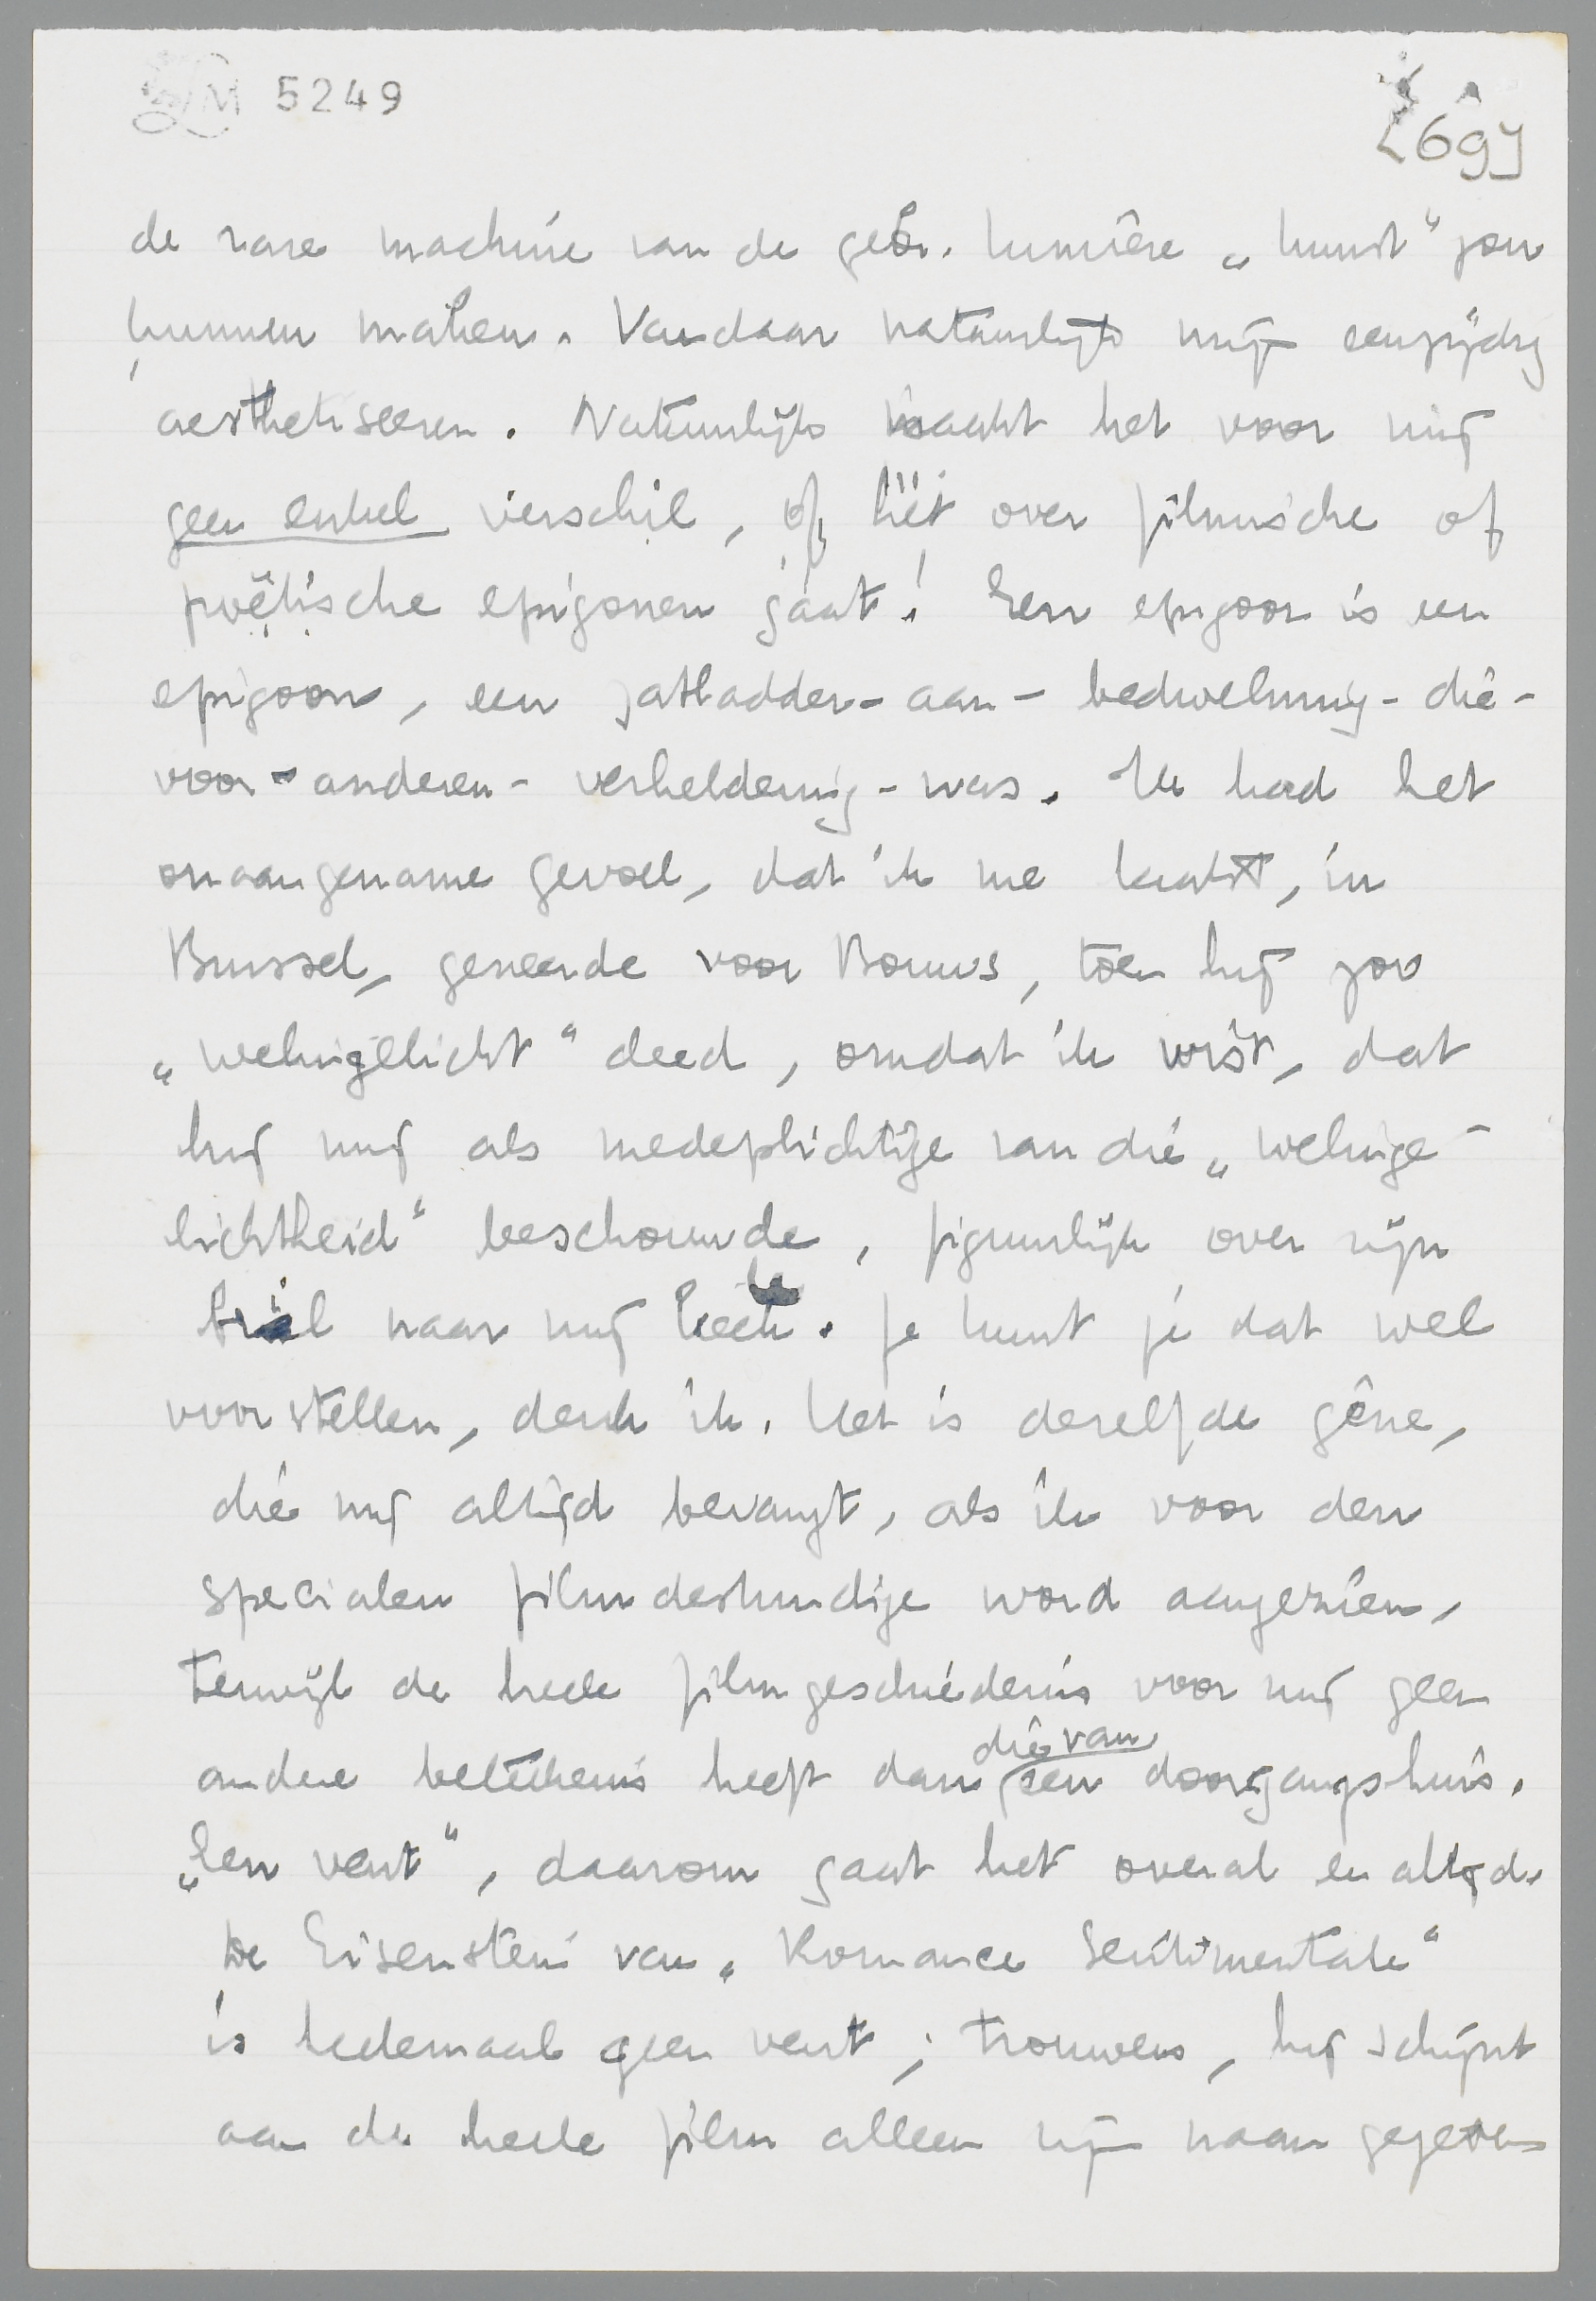 LM 5249
[69]
de rare machine van de gebr. Lumière „kunst" zou
kunnen maken. Vandaar natuurlijk mijn eenzijdig
aesthetiseeren. Natuurlijk maakt het voor mij
geen enkel verschil, of het over filmische of
poëtische epigonen gaat! Een epigoon is een
epigoon, een zatladder-aan-bedwelming-die-
voor-anderen-verheldering-was. Ik had het
onaangename gevoel, dat ik me laatst, in
Brussel, geneerde voor Bouws, toen hij zoo
„welingelicht" deed, omdat ik wist, dat
hij mij als medeplichtige van die „welinge-
lichtheid" beschouwde, figuurlijk over zijn
bril naar mij keek. Je kunt je dat wel
voorstellen, denk ik. Het is dezelfde gêne,
die mij altijd bevangt, als ik voor den
specialen filmdeskundige word aangezien,
terwijl de heele filmgeschiedenis voor mij geen
andere beteekenis heeft dan die van een doorgangshuis.
„Een vent", daarom gaat het overal en altijd.
De Eisenstein van „Romance Sentimentale"
is heelemaal geen vent; trouwens, hij schijnt
aan de heele film alleen zijn naam gegeven